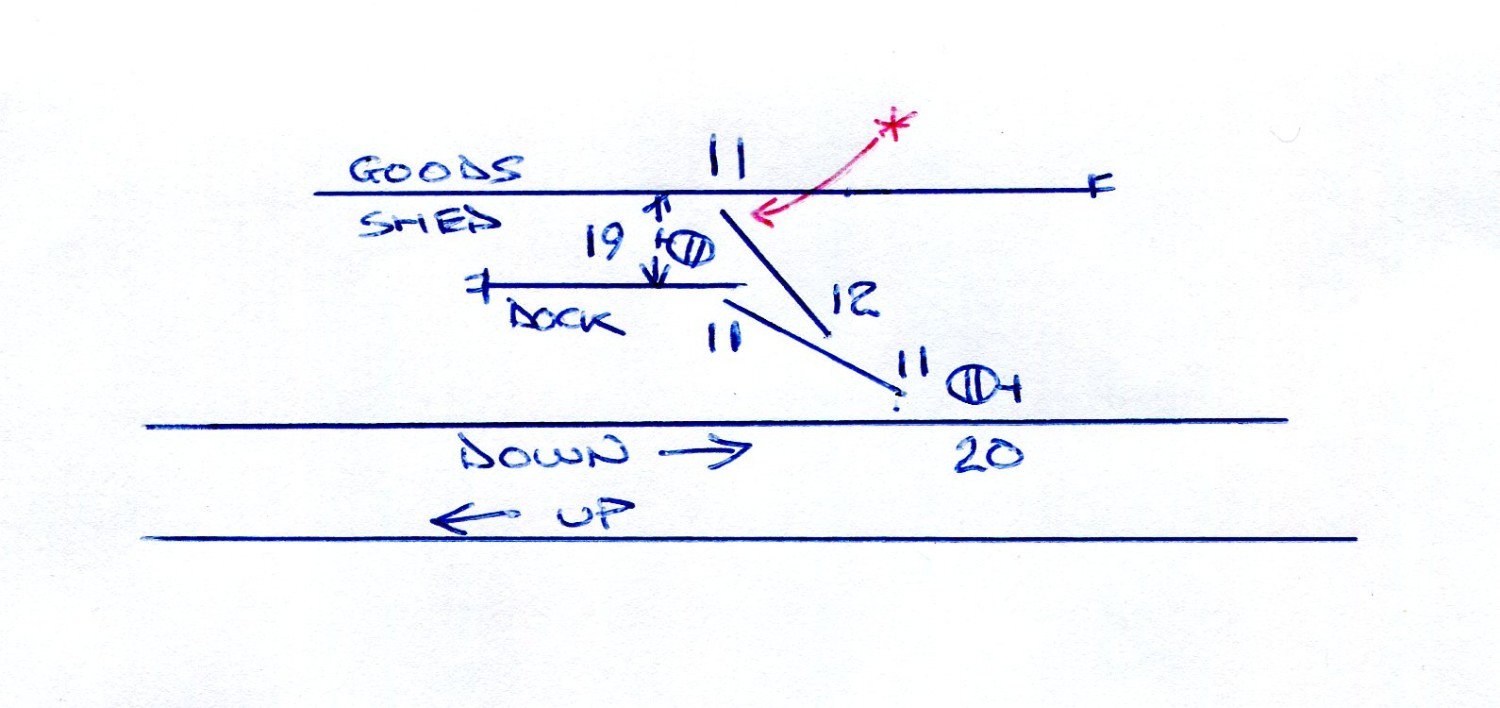 GOODS 11
SHED
19
12
DOCK
11
11
DOWN →
20
← UP